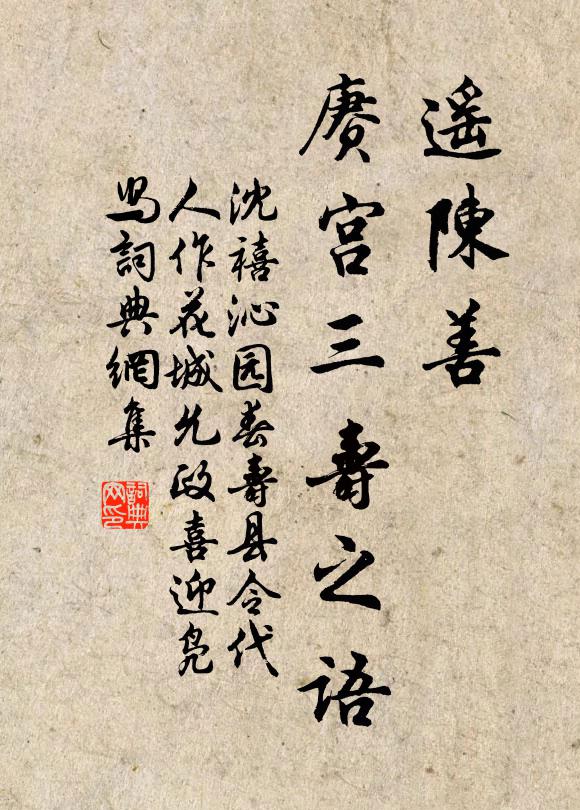 遥陳善
赓宫三壽之语
沈禧沁园春壽县令代
人作花城允政喜迎凫
舄詞典網集
詞典网印